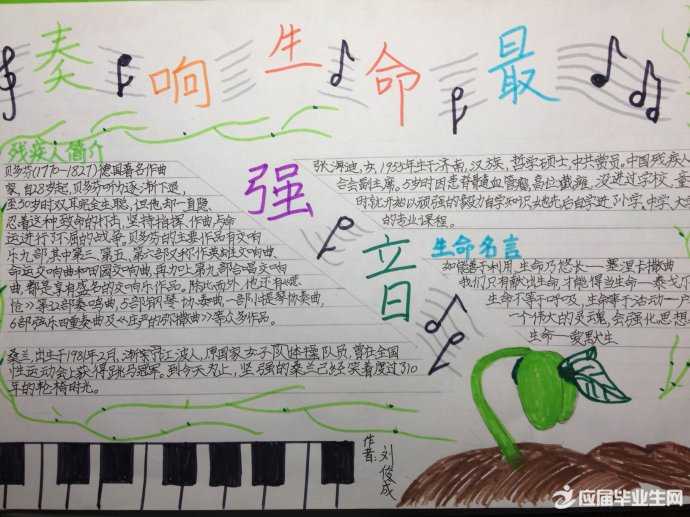 奏响生命最
强音
残疾人简介
贝多芬(1770-1827)德国著名作曲
家,自28岁起,贝多芬听力逐渐下退,
至50岁时双耳完全失聪,但他却一直题
忍着这种致命的打击,坚持指挥、作曲与命
运进行了不屈的战斗。贝多芬的主要作品有交响
乐九部,其中第三、第五、第六部又称作英雄交响曲、
命运交响曲和田园交响曲,再加上第九部合唱交响
曲,都是享有盛名的交响乐作品。除此而外,他还有
怆》等
部奏鸣曲、5部钢琴协奏曲、一部小提琴协奏曲,
6部弦乐四重奏曲及《庄严的弥撒曲》等众多作品。
桑兰,出生于1981年2月,浙
宁波人,原国家女子队体操队员,曾在全国
性运动会上获得跳马冠军。到今天为止,坚强的桑兰已经笑着度过了10
年的轮椅时光。
张海迪,女,1955年生于济南,汉族,哲学硕士,中共党员。中国残疾人
合会副主席。5岁时因患脊髓血管瘤,高位截瘫,没进过学校,童
时就开始以顽强的毅力自学知识,她先后自学
小学、中学、大学
的专业课程。
生命名言
如能善于利用,生命乃悠长—塞涅卡
我们只有献出生命,才能得当生命—泰戈尔
生命不等于呼吸,生命等于活动—卢
一个伟大的灵魂,会强化思想
生命—爱默生
作者:刘俊成
应届毕业生网